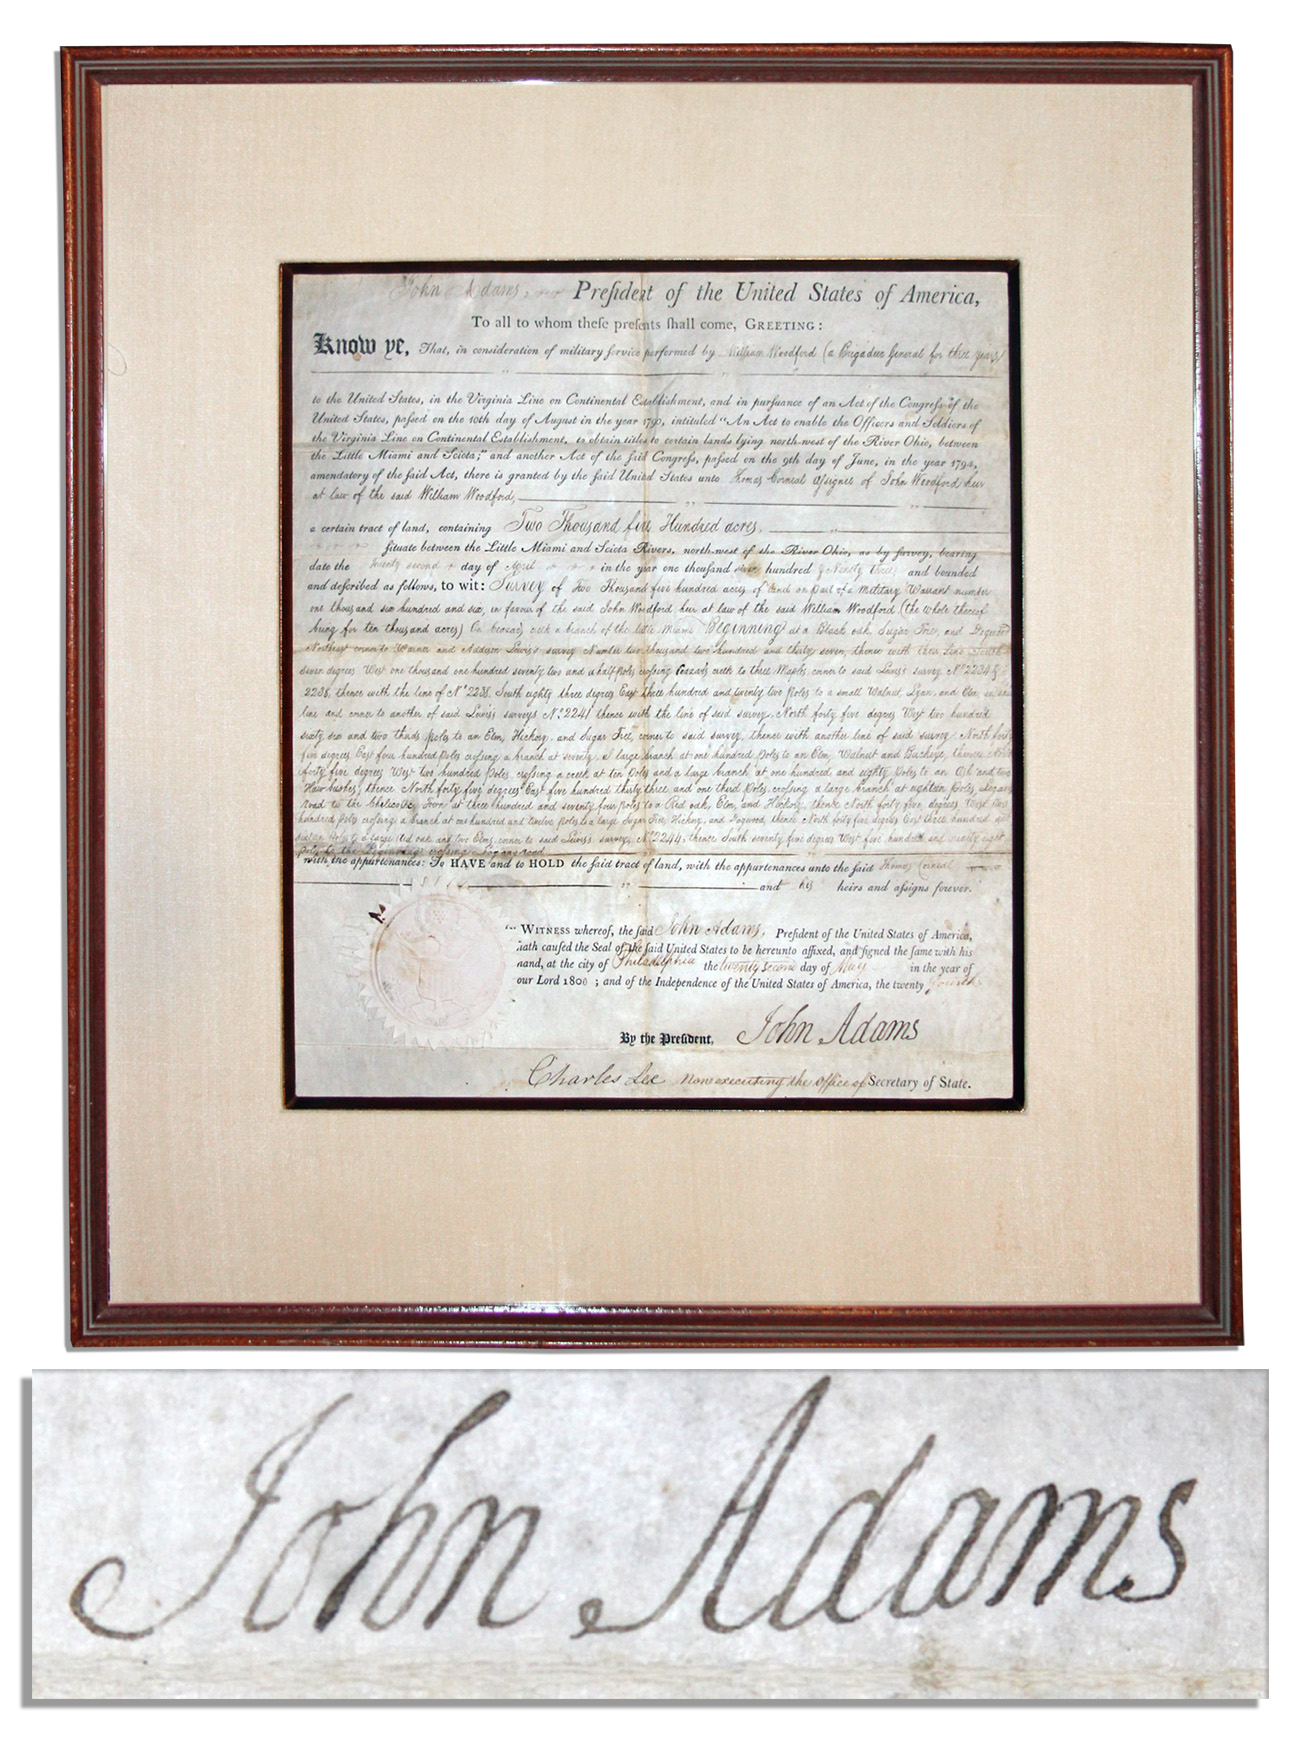 John Adams, President of the United States of America,
To all to whom theſe preſents ſhall come, GREETING:
Know ye, That, in conſideration of military ſervice performed by William Woodford (a Brigadier General for three years)
to the United States, in the Virginia Line on Continental Eſtabliſhment, and in purſuance of an Act of the Congreſs of the
United States, paſſed on the 10th day of Auguſt in the year 1790, intituled "An Act to enable the Officers and Soldiers of
the Virginia Line on Continental Eſtabliſhment, to obtain titles to certain lands lying north-weſt of the River Ohio, between
the Little Miami and Sciota;" and another Act of the ſaid Congreſs, paſſed on the 9th day of June, in the year 1794,
amendatory of the ſaid Act, there is granted by the ſaid United States unto Thomas Corneal aſsignee of John Woodford heir
at law of the said William Woodford,
a certain tract of land, containing Two Thousand five Hundred acres,
ſituate between the Little Miami and Sciota Rivers, north-weſt of the River Ohio, as by ſurvey, bearing
date the twenty second day of April in the year one thouſand hundred & Ninety three and bounded
and deſcribed as follows, to wit: Survey of Two Thousand five hundred acres of land on part of a Military Warrant number
one thousand six hundred and six, in favour of the said John Woodford heir at law of the said William Woodford (the whole thereof
being for ten thousand acres) On creek a branch of the little Miami Beginning at a Black oak, Sugar Tree, and Dogwood
Northeast corner to Warner and Addison Lewis's survey Number two thousand two hundred and thirty seven, thence with their Line South
seven degrees West one thousand one hundred seventy two and a half Poles croſsing creek to three Maples, corner to said Lewis's survey No 2234 &
2238, thence with the line of No 2238, South eighty three degrees East three hundred and twenty two Poles to a small Walnut, and Elm,
line and corner to another of said Lewis's surveys No 2241 thence with the line of said survey, North forty five degrees West two hundred
sixty six and two thirds poles to an Elm, Hickory, and Sugar Tree, corner to said survey, thence with another line of said survey, North forty
five degrees East four hundred Poles croſsing a branch at seventy, a large branch at one hundred Poles to an Elm, Walnut and Buckeye, thence North
forty five degrees West two hundred Poles, croſsing a creek at ten Poles and a large branch at one hundred and eighty Poles to an and two
Hawbushes, thence North forty five degrees East five hundred thirty three and one third Poles, croſsing a large branch at eighteen Poles,
road to the Town at three hundred and seventy four poles to a Red oak, Elm, and Hickory, thence North forty five degrees West two
hundred Poles croſsing a branch at one hundred and twelve Poles to a large Sugar Tree, Hickory, and Dogwood, thence North forty five degrees East three hundred and
sixteen Poles to a large Red oak and two Elms corner to said Lewis's survey, No 2244, thence South seventy five degrees West five hundred and eight
Poles to the Beginning croſsing road
with the appurtenances: To HAVE and to HOLD the ſaid tract of land, with the appurtenances unto the ſaid Thomas Corneal
and his heirs and aſſigns forever.
WITNESS whereof, the ſaid John Adams, Preſident of the United States of America,
hath cauſed the Seal of the ſaid United States to be hereunto affixed, and ſigned the ſame with his
hand, at the city of Philadelphia the twenty second day of May in the year of
our Lord 1800 ; and of the Independence of the United States of America, the twenty fourth
By the Preſident, John Adams
Charles Lee now executing the Office of Secretary of State.
John Adams